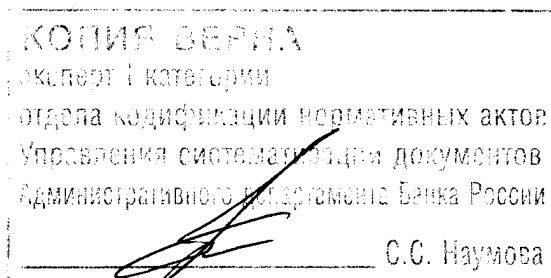 КОПИЯ ВЕРНА
эксперт I категории
отдела кодификации нормативных актов
Управления систематизации документов
Административного департамента Банка России
С.С. Наумова